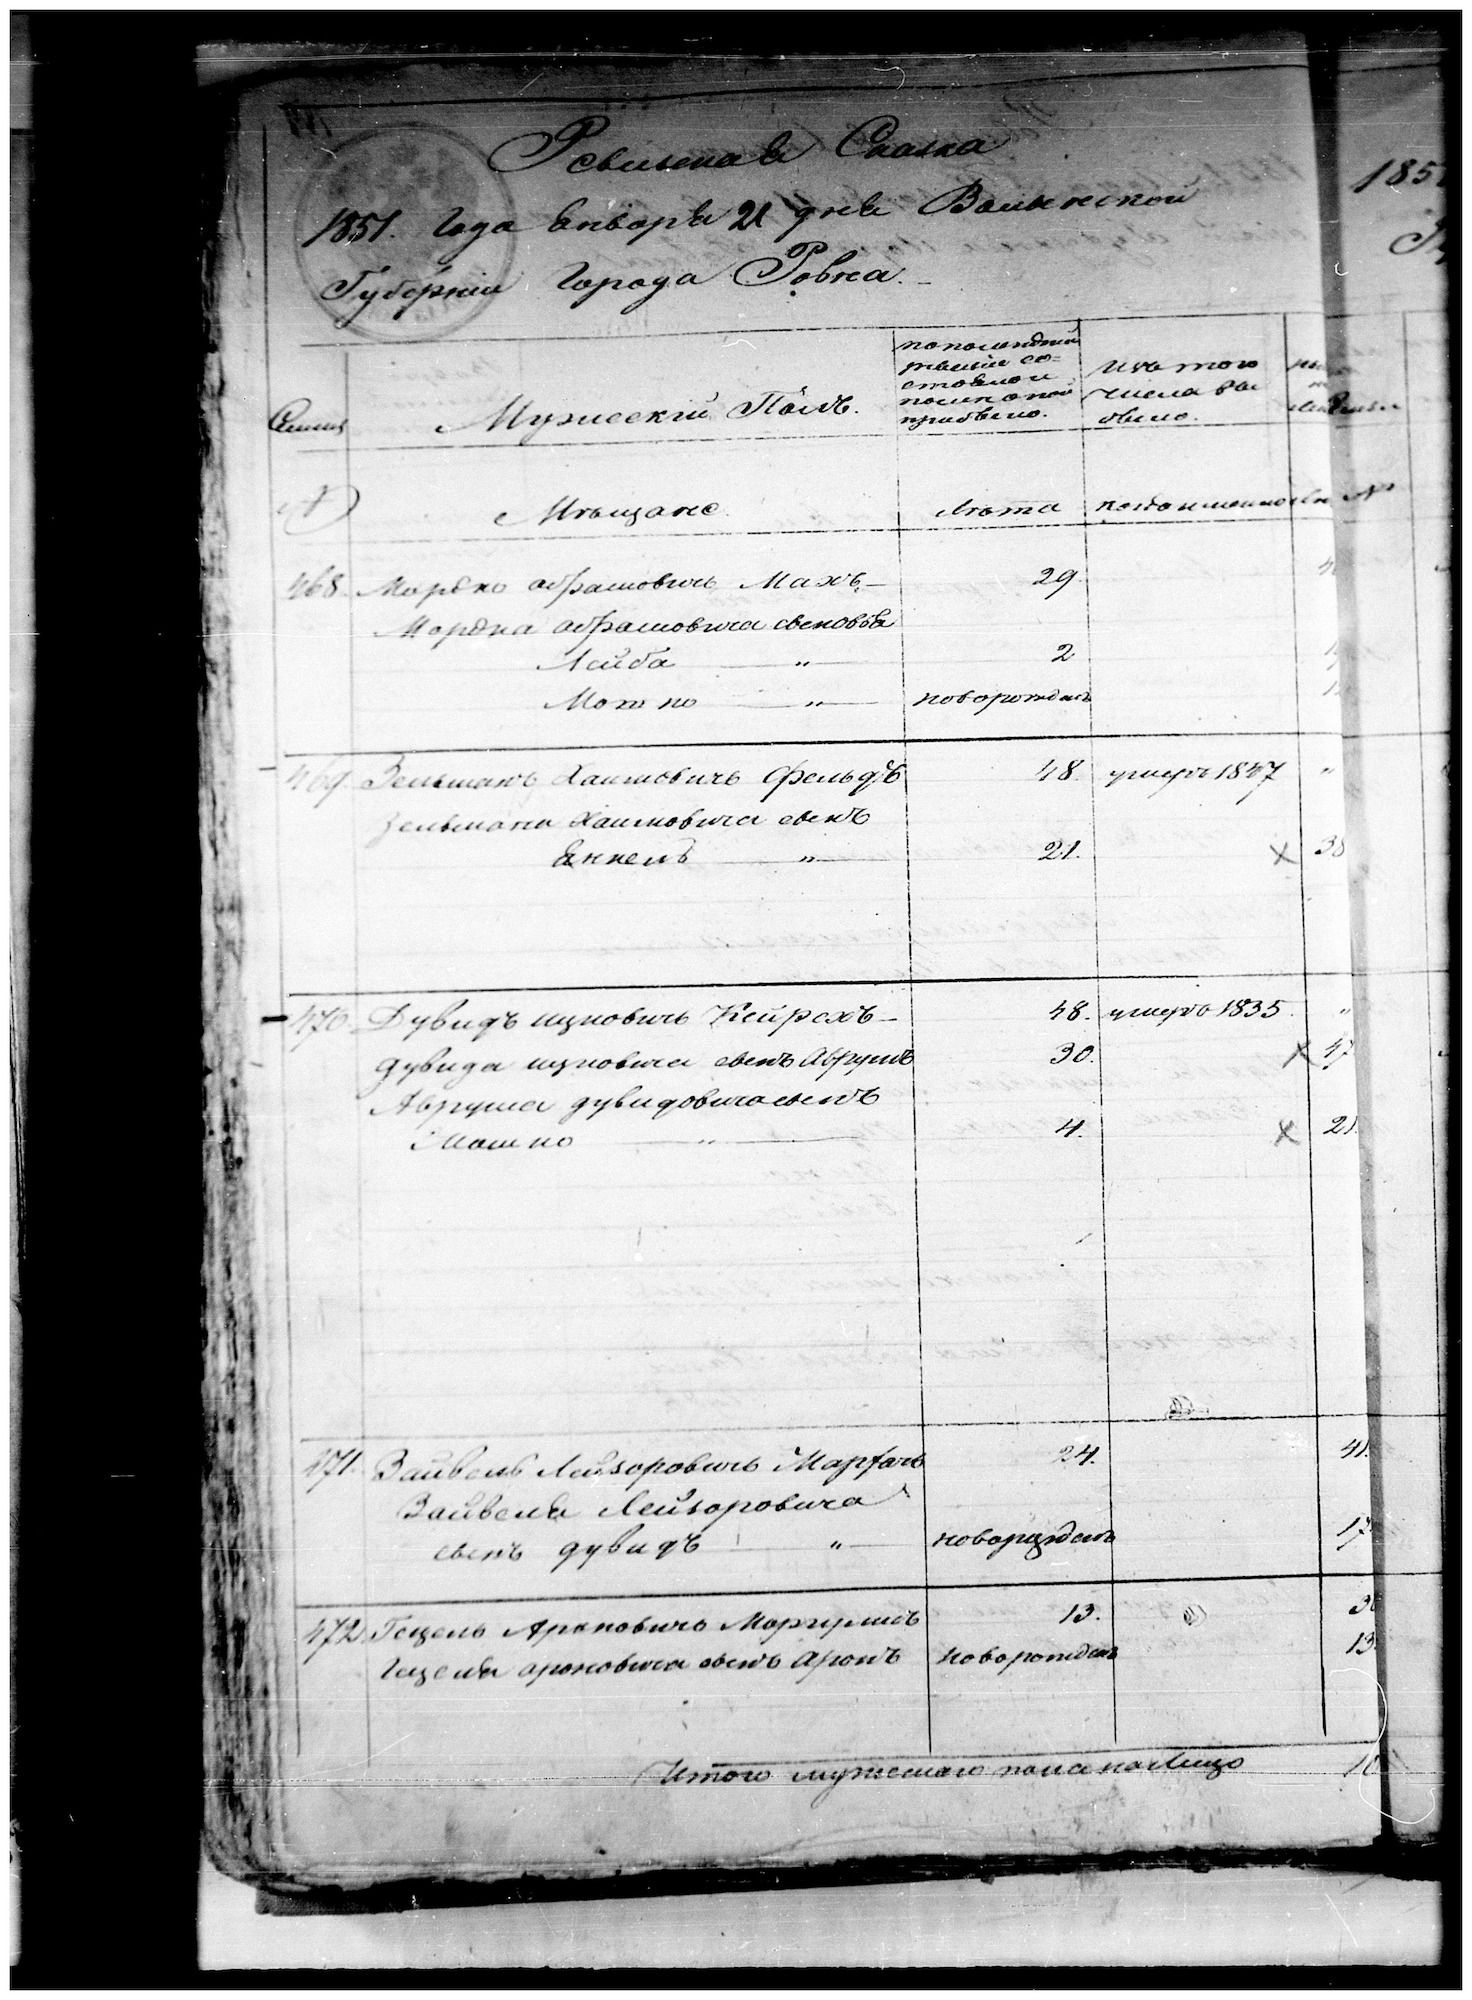 Ревизская Сказка
1851. года Января 21 дня Волынской
Губернiи Города Ровна.
Семьи
Мужескiй Полъ.
Изъ того числа выбыло.
Мѣщане
Лѣта
когда именно
468. Мордко абрамовичь Махъ 29.
Мордка абрамовича сыновья
Лейба — " — 2
Мошко — " — новорожденъ
469 Зельманъ Хаимовичь Фельдъ 48. умеръ 1847 "
Зельмана Хаимовича сынъ
Янкель — " — 21. х 38
470. Дувидъ ицковичь Кейрехъ 48. умеръ 1835. "
дувида ицковича сынъ Аврумъ 30. х 47
Аврума дувидовича сынъ
Мошко — " — 4. х 21.
471. Вайвель Лейзоровичь Маргачъ 24. 41.
Вайвеля Лейзоровича
сынъ дувидъ — " — новорожденъ 17
472. Гецель Ароновичь Маргулисъ 13. 30
Гецеля ароновича сынъ Аронъ новорожденъ 13
Итого мужескаго пола налицо 10
185